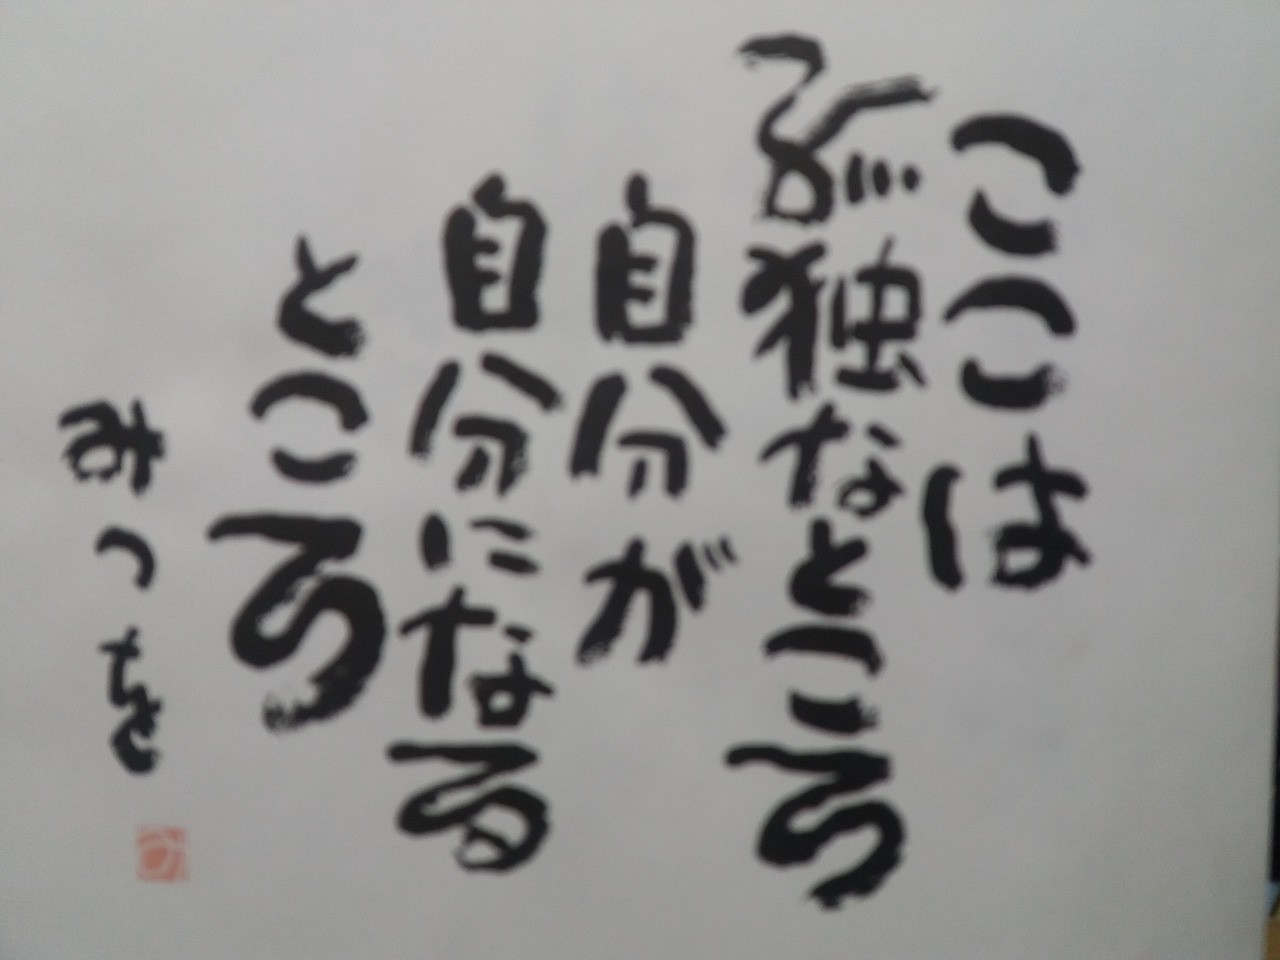 ここは
孤独なところ
自分が
自分になる
ところ
みつを